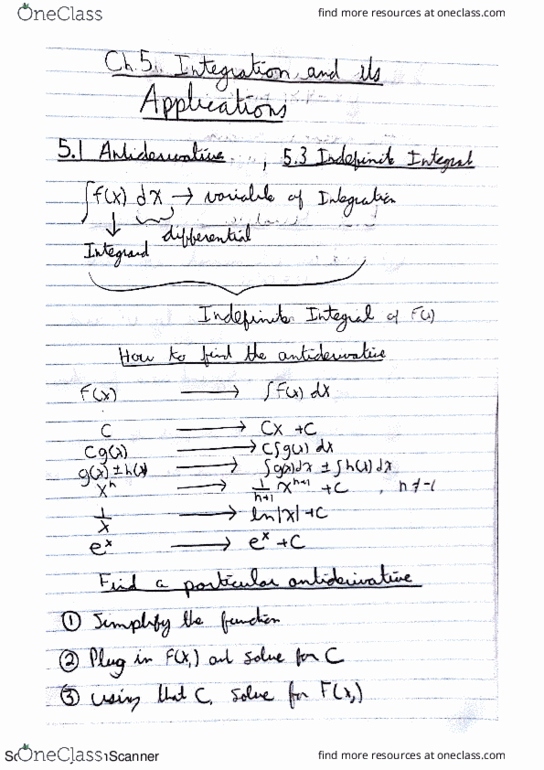 OneClass find more resources at oneclass.com
Ch.5. Integration and its
Applications
5.1 Antiderivative, 5.3 Indefinite Integral
∫f(x) dx → variable of Integration
Integrand differential
Indefinite Integral of F(x)
How to find the antiderivative
F(x) → ∫F(x) dx
C → Cx + C
Cg(x) → C∫g(x) dx
g(x) ± h(x) → ∫g(x)dx ± ∫h(x)dx
xⁿ → 1/(n+1) xⁿ⁺¹ + C , n ≠ -1
1/x → ln|x| + C
eˣ → eˣ + C
Find a particular antiderivative
① Simplify the function
② Plug in F(x,) and solve for C
③ Using that C, solve for F(x,)
OneClass Scanner find more resources at oneclass.com